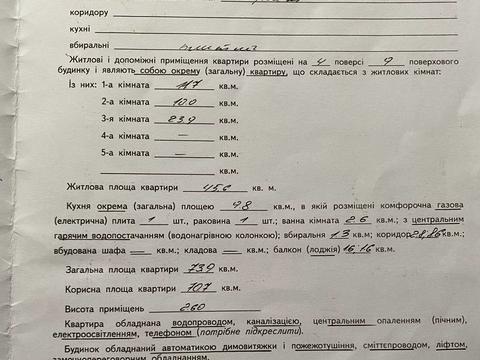 коридору
кухні
вбиральні
Житлові і допоміжні приміщення квартири розміщені на 4 поверсі 9 поверхового
будинку і являють собою окрему (загальну) квартиру, що складається з житлових кімнат:
Із них: 1-а кімната 11,7 кв.м.
2-а кімната 10.0 кв.м.
3-я кімната 23.9 кв.м.
4-а кімната — кв.м.
5-а кімната — кв.м.
кв.м.
Житлова площа квартири 45,6 кв. м.
Кухня окрема (загальна) площею 9.8 кв.м., в якій розміщені комфорочна газова
(електрична) плита 1 шт., раковина 1 шт.; ванна кімната 2.6 кв.м.; з центральним
гарячим водопостачанням (водонагрівною колонкою); вбиральня 1.3 кв.м; коридор кв.м.;
вбудована шафа — кв.м.; кладова — кв.м.; балкон (лоджія) 16.16 кв.м.
Загальна площа квартири 73,9 кв.м.
Корисна площа квартири 70,7 кв.м.
Висота приміщень 2.60
Квартира обладнана водопроводом, каналізацією, центральним опаленням (пічним),
електроосвітленням, телефоном (потрібне підкреслити).
Будинок обладнаний автоматикою димовитяжки і пожежотушіння, сміттєпроводом, ліфтом,
замочнопереговорним обладнанням.